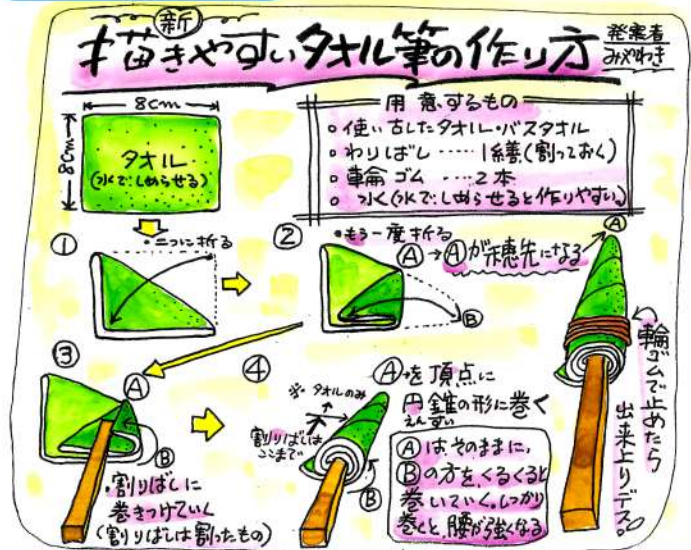 新
描きやすいタオル筆の作り方
発案者
みやわき
8cm
8cm
タオル
(水でしめらせる)
用意するもの
。使い古したタオル・バスタオル
。わりばし……1繕(割っておく)
。輪ゴム……2本
。水(水でしめらせると作りやすい)
①
・二つに折る
②
・もう一度折る
Ⓐ→Ⓐが穂先になる
Ⓑ
Ⓐ
③
Ⓐ
Ⓑ
・割りばしに
巻きつけていく
(割りばしは割ったもの)
④
※タオルのみ
割りばしは
ここまで
Ⓑ
Ⓐを頂点に
円錐の形に巻く
えんすい
Ⓐは、そのままに、
Ⓑの方を、くるくると
巻いていく。しっかり
巻くと、腰が強くなる
輪ゴムで止めたら
出来上りデス。